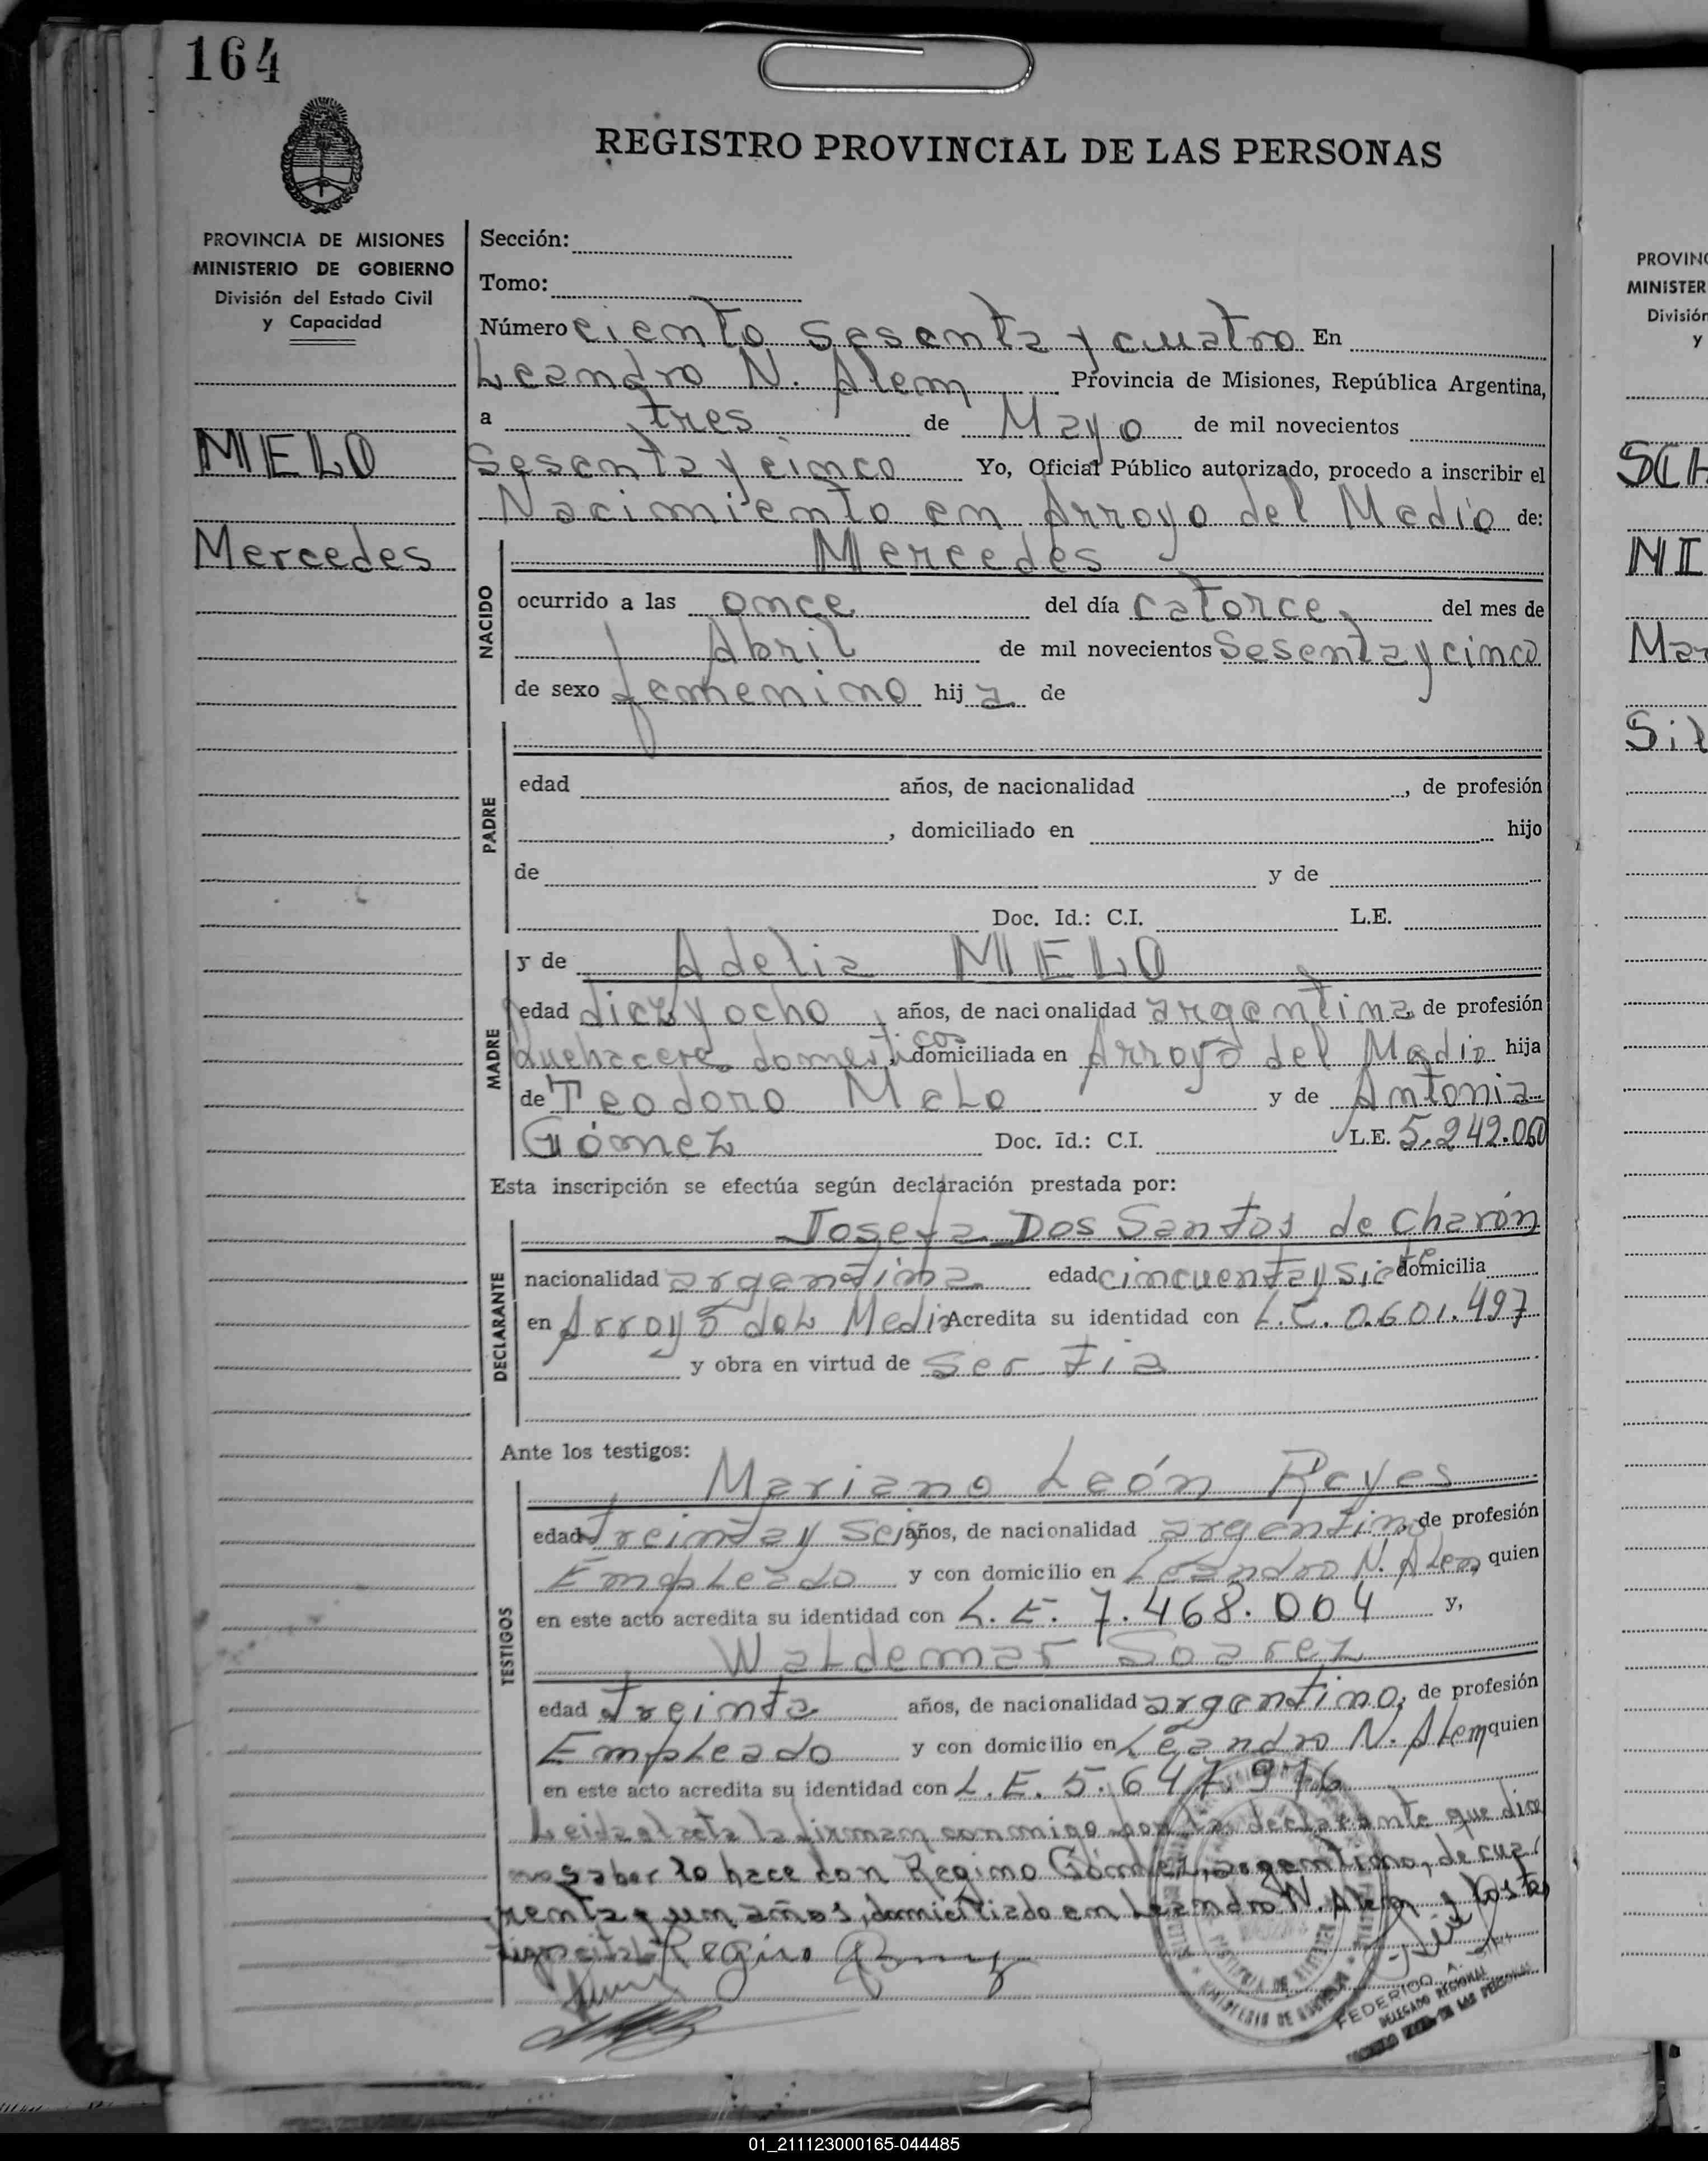 164
REGISTRO PROVINCIAL DE LAS PERSONAS
PROVINCIA DE MISIONES
MINISTERIO DE GOBIERNO
División del Estado Civil
y Capacidad
MELO
Mercedes
Sección:
Tomo:
Número ciento sesenta y cuatro En
Leandro N. Alem Provincia de Misiones, República Argentina,
a tres de Mayo de mil novecientos
sesenta y cinco Yo, Oficial Público autorizado, procedo a inscribir el
Nacimiento en Arroyo del Medio de:
Mercedes
NACIDO
ocurrido a las once del día catorce, del mes de
Abril de mil novecientos sesenta y cinco
de sexo femenino hij a de
PADRE
edad años, de nacionalidad , de profesión
, domiciliado en hijo
de y de
Doc. Id.: C.I. L.E.
MADRE
y de Adelia MELO
edad diez y ocho, años, de nacionalidad argentina, de profesión
quehaceres domesticos, domiciliada en Arroyo del Medio hija
de Teodoro Melo y de Antonia
Gómez Doc. Id.: C.I. L.E. 5.242.060
Esta inscripción se efectúa según declaración prestada por:
DECLARANTE
Josefa Dos Santos de Charón
nacionalidad argentina edad cincuenta y siete domicilia
en Arroyo del Medio Acredita su identidad con L.C. 0.601.497
y obra en virtud de ser tia
Ante los testigos:
TESTIGOS
Mariano León Reyes
edad treinta y seis años, de nacionalidad argentino, de profesión
Empleado y con domicilio en Leandro N. Alem quien
en este acto acredita su identidad con L.E. 7.468.004 y,
Waldemar Soarez
edad treinta años, de nacionalidad argentino, de profesión
Empleado y con domicilio en Leandro N. Alem quien
en este acto acredita su identidad con L.E. 5.647.976
Leida el acta la firman conmigo por la declarante que dice
no saber lo hace don Regino Gómez, argentino, de cua
renta y un años, domiciliado en Leandro N. Alem y los tes
Regino
FEDERICO A.
DELEGADO REGIONAL
DE LAS PERSONAS
PROVIN
MINISTER
División
y
SCH
NI
Mar
Sil
01_211123000165-044485